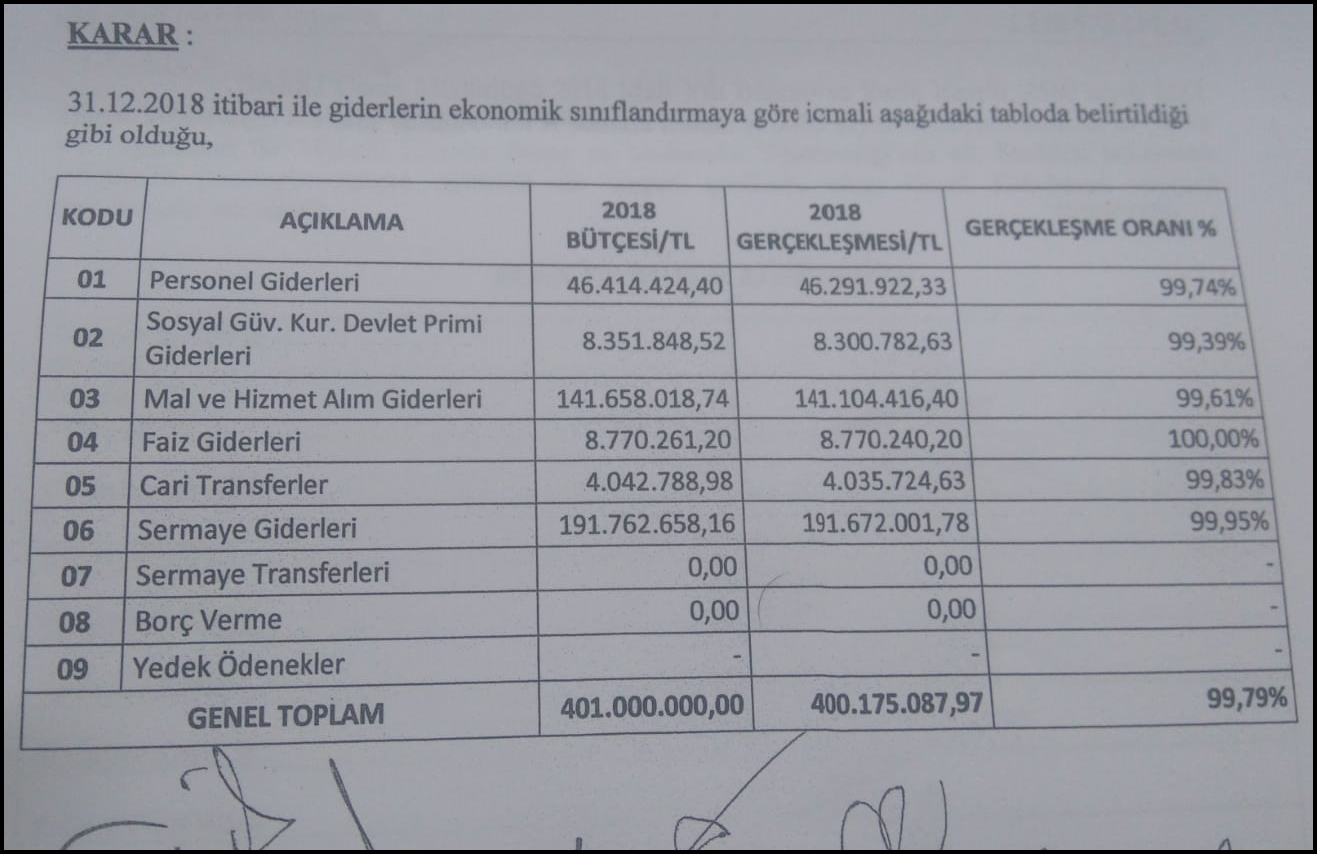 KARAR :
31.12.2018 itibari ile giderlerin ekonomik sınıflandırmaya göre icmali aşağıdaki tabloda belirtildiği
gibi olduğu,
KODU AÇIKLAMA 2018 BÜTÇESİ/TL 2018 GERÇEKLEŞMESİ/TL GERÇEKLEŞME ORANI %
01 Personel Giderleri 46.414.424,40 46.291.922,33 99,74%
02 Sosyal Güv. Kur. Devlet Primi Giderleri 8.351.848,52 8.300.782,63 99,39%
03 Mal ve Hizmet Alım Giderleri 141.658.018,74 141.104.416,40 99,61%
04 Faiz Giderleri 8.770.261,20 8.770.240,20 100,00%
05 Cari Transferler 4.042.788,98 4.035.724,63 99,83%
06 Sermaye Giderleri 191.762.658,16 191.672.001,78 99,95%
07 Sermaye Transferleri 0,00 0,00 -
08 Borç Verme 0,00 0,00 -
09 Yedek Ödenekler - - -
GENEL TOPLAM 401.000.000,00 400.175.087,97 99,79%